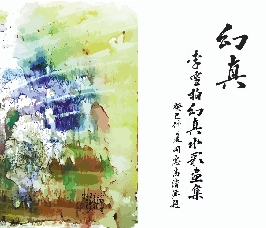 幻真
李雪柏幻真水彩画集
癸巳仲夏